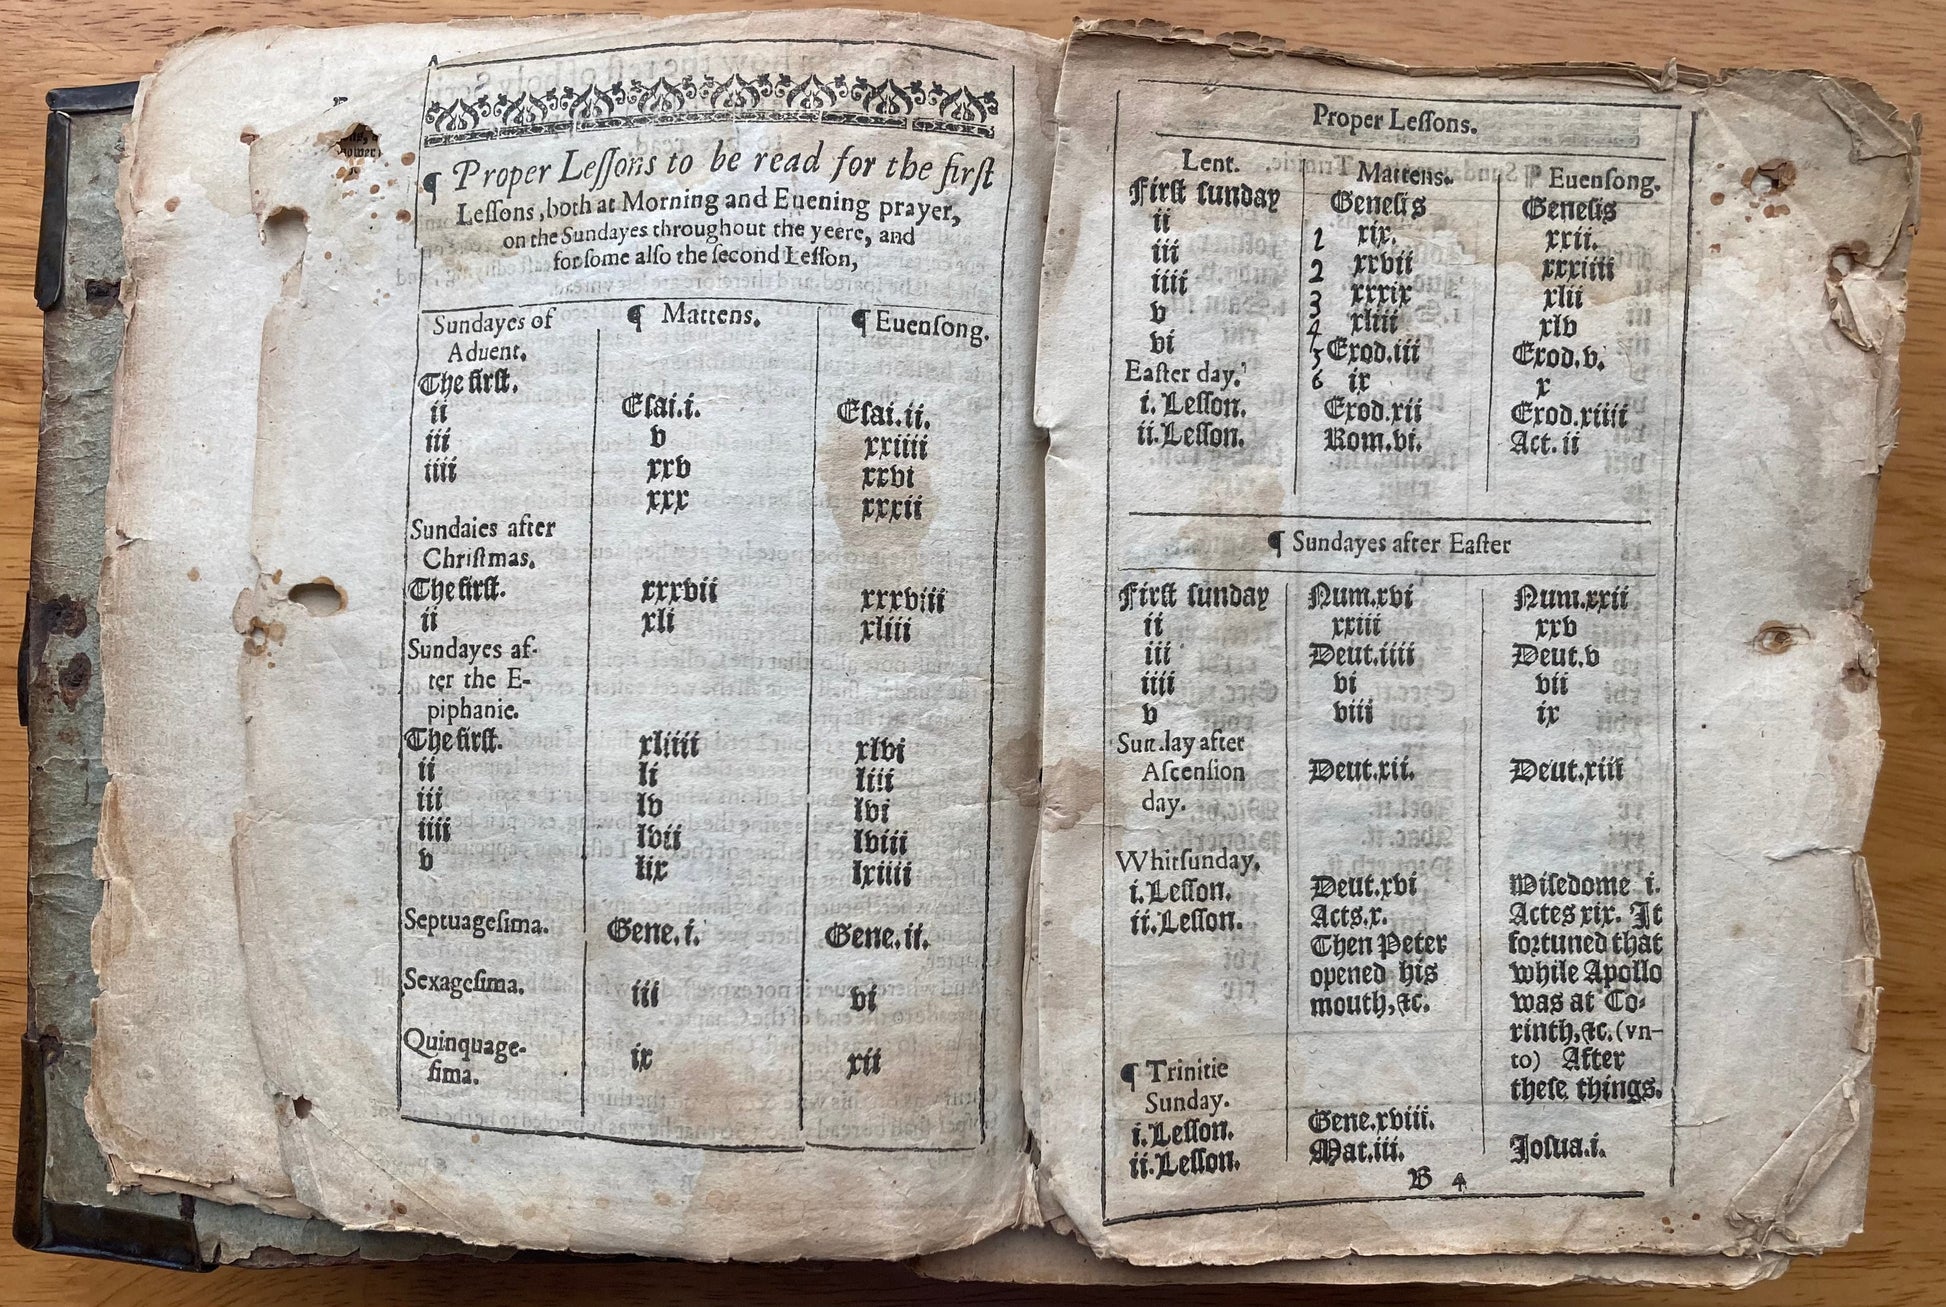 ¶ Proper Leſſons to be read for the firſt
Leſſons, both at Morning and Euening prayer,
on the Sundayes throughout the yeere, and
for ſome alſo the ſecond Leſſon,
Sundayes of ¶ Mattens. ¶ Euenſong.
Aduent.
The firſt. Eſai.i. Eſai.ii.
ii v xxiiii
iii xxv xxvi
iiii xxx xxxii
Sundaies after
Chriſtmas.
The firſt. xxxvii xxxviii
ii xli xliii
Sundayes af-
ter the E-
piphanie.
The firſt. xliiii xlvi
ii li liii
iii lv lvi
iiii lvii lviii
v lix lxiiii
Septuageſima. Gene.i. Gene.ii.
Sexageſima. iii vi
Quinquage- ix xii
ſima.
Proper Leſſons.
Lent. Mattens. ¶ Euenſong.
Firſt ſunday Geneſis Geneſis
ii 1 xix. xxii.
iii 2 xxvii xxxiiii
iiii 3 xxxix xlii
v 4 xliii xlv
vi 5 Exod.iii Exod.v.
Eaſter day. 6 ix x
i. Leſſon. Exod.xii Exod.xiiii
ii.Leſſon. Rom.vi. Act.ii
¶ Sundayes after Eaſter
Firſt ſunday Num.xvi Num.xxii
ii xxiii xxv
iii Deut.iiii Deut.v
iiii vi vii
v viii ix
Sunday after
Aſcenſion Deut.xii. Deut.xiii
day.
Whitſunday.
i.Leſſon. Deut.xvi Wiſedome i.
ii.Leſſon. Acts.x. Actes xix. It
Then Peter fortuned that
opened his while Apollo
mouth,&c. was at Co-
rinth,&c.(vn-
to) After
theſe things.
¶ Trinitie
Sunday.
i.Leſſon. Gene.xviii. Joſua.i.
ii.Leſſon. Mat.iii.
B 4